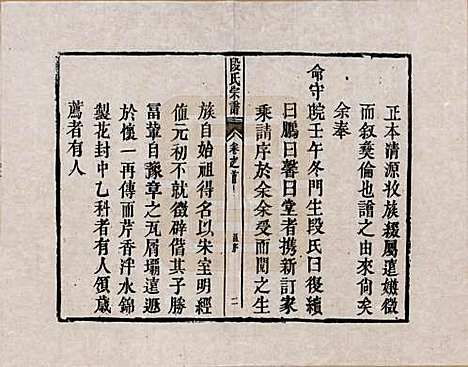 正本清源收族綴屬遠嫌微
而叙彜倫也譜之由來尙矣
余奉
命守皖壬午冬門生段氏曰復續
曰鵬曰馨曰堂者携新訂家
乘請序於余余受而閱之生
段氏宗譜
卷之首
二
族自始祖得名以朱室明經
值元初不就徵辟偕其子勝
冨輦自豫章之瓦屑壩遠遯
於懷一再傳而芹香泮水錦
製花封中乙科者有人領歲
薦者有人